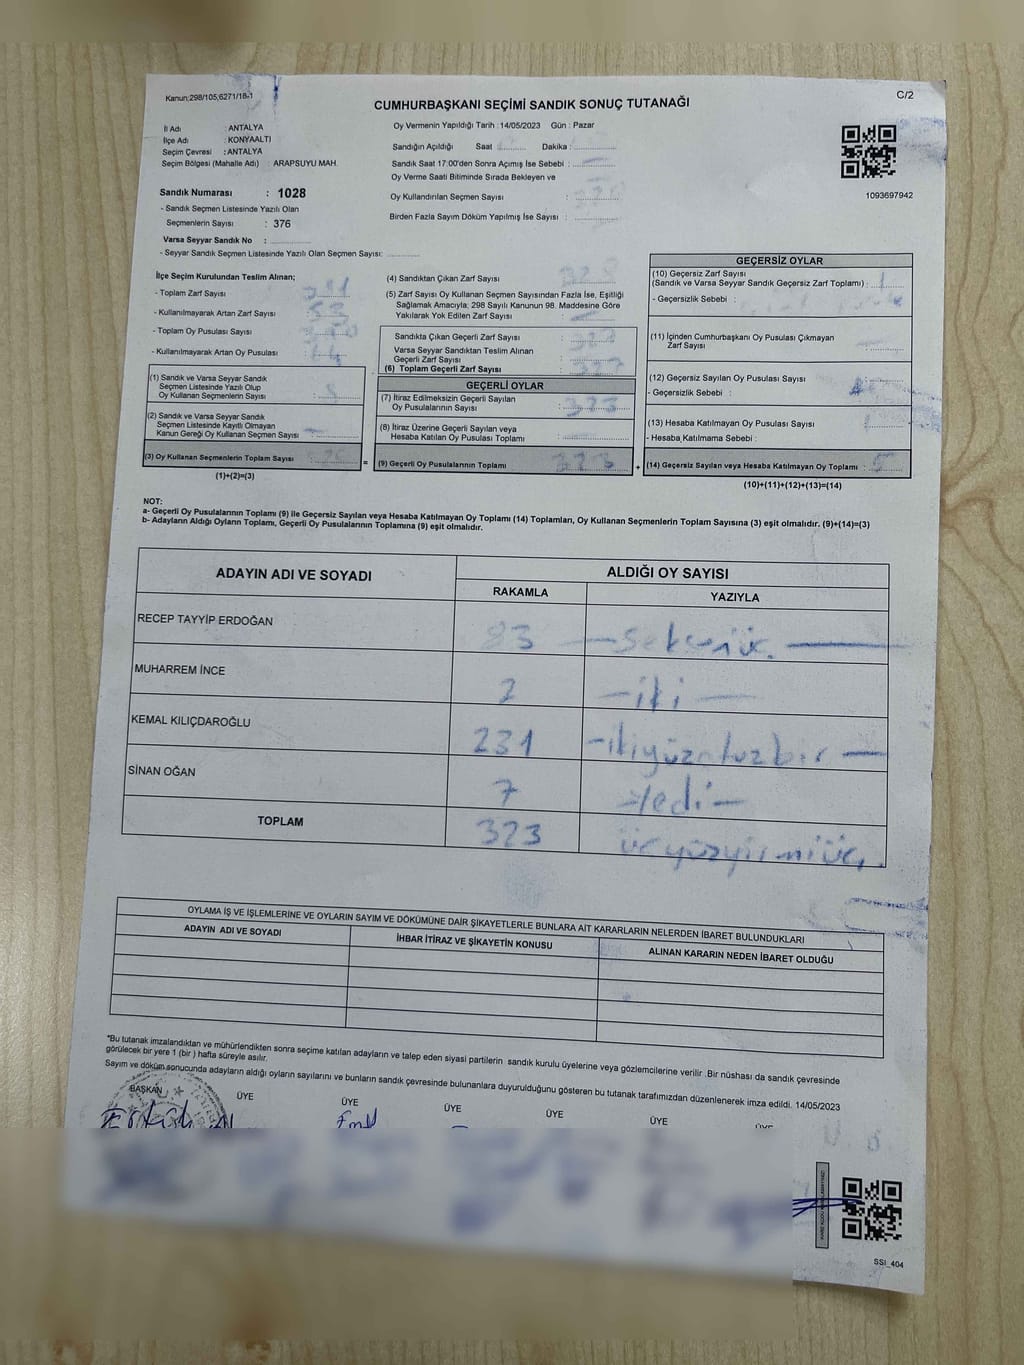 Kanun:298/105;6271/18-1
C/2
CUMHURBAŞKANI SEÇİMİ SANDIK SONUÇ TUTANAĞI
İl Adı : ANTALYA
İlçe Adı : KONYAALTI
Seçim Çevresi : ANTALYA
Seçim Bölgesi (Mahalle Adı) : ARAPSUYU MAH.
Sandık Numarası : 1028
- Sandık Seçmen Listesinde Yazılı Olan
Seçmenlerin Sayısı : 376
Varsa Seyyar Sandık No :
- Seyyar Sandık Seçmen Listesinde Yazılı Olan Seçmen Sayısı:
Oy Vermenin Yapıldığı Tarih : 14/05/2023 Gün : Pazar
Sandığın Açıldığı Saat : Dakika :
Sandık Saat 17:00'den Sonra Açımış İse Sebebi :
Oy Verme Saati Bitiminde Sırada Bekleyen ve
Oy Kullandırılan Seçmen Sayısı :
Birden Fazla Sayım Döküm Yapılmış İse Sayısı :
1093697942
İlçe Seçim Kurulundan Teslim Alınan;
- Toplam Zarf Sayısı :
- Kullanılmayarak Artan Zarf Sayısı : 53
- Toplam Oy Pusulası Sayısı :
- Kullanılmayarak Artan Oy Pusulası :
(1) Sandık ve Varsa Seyyar Sandık
Seçmen Listesinde Yazılı Olup
Oy Kullanan Seçmenlerin Sayısı :
(2) Sandık ve Varsa Seyyar Sandık
Seçmen Listesinde Kayıtlı Olmayan
Kanun Gereği Oy Kullanan Seçmen Sayısı :
(3) Oy Kullanan Seçmenlerin Toplam Sayısı :
(1)+(2)=(3)
(4) Sandıktan Çıkan Zarf Sayısı : 328
(5) Zarf Sayısı Oy Kullanan Seçmen Sayısından Fazla İse, Eşitliği
Sağlamak Amacıyla; 298 Sayılı Kanunun 98. Maddesine Göre
Yakılarak Yok Edilen Zarf Sayısı :
Sandıkta Çıkan Geçerli Zarf Sayısı :
Varsa Seyyar Sandıktan Teslim Alınan
Geçerli Zarf Sayısı :
(6) Toplam Geçerli Zarf Sayısı : 327
GEÇERLİ OYLAR
(7) İtiraz Edilmeksizin Geçerli Sayılan
Oy Pusulalarının Sayısı : 323
(8) İtiraz Üzerine Geçerli Sayılan veya
Hesaba Katılan Oy Pusulası Toplamı :
= (9) Geçerli Oy Pusulalarının Toplamı : 323
GEÇERSİZ OYLAR
(10) Geçersiz Zarf Sayısı
(Sandık ve Varsa Seyyar Sandık Geçersiz Zarf Toplamı) : 1
- Geçersizlik Sebebi :
(11) İçinden Cumhurbaşkanı Oy Pusulası Çıkmayan
Zarf Sayısı :
(12) Geçersiz Sayılan Oy Pusulası Sayısı :
- Geçersizlik Sebebi :
(13) Hesaba Katılmayan Oy Pusulası Sayısı :
- Hesaba Katılmama Sebebi :
+ (14) Geçersiz Sayılan veya Hesaba Katılmayan Oy Toplamı : 5
(10)+(11)+(12)+(13)=(14)
NOT:
a- Geçerli Oy Pusulalarının Toplamı (9) ile Geçersiz Sayılan veya Hesaba Katılmayan Oy Toplamı (14) Toplamları, Oy Kullanan Seçmenlerin Toplam Sayısına (3) eşit olmalıdır. (9)+(14)=(3)
b- Adayların Aldığı Oyların Toplamı, Geçerli Oy Pusulalarının Toplamına (9) eşit olmalıdır.
ADAYIN ADI VE SOYADI
ALDIĞI OY SAYISI
RAKAMLA YAZIYLA
RECEP TAYYİP ERDOĞAN 83 -seksenüç.-
MUHARREM İNCE 2 -iki-
KEMAL KILIÇDAROĞLU 231 -ikiyüzotuzbir-
SİNAN OĞAN 7 -Yedi-
TOPLAM 323 üçyüzyirmiüç.
OYLAMA İŞ VE İŞLEMLERİNE VE OYLARIN SAYIM VE DÖKÜMÜNE DAİR ŞİKAYETLERLE BUNLARA AİT KARARLARIN NELERDEN İBARET BULUNDUKLARI
ADAYIN ADI VE SOYADI
İHBAR İTİRAZ VE ŞİKAYETİN KONUSU
ALINAN KARARIN NEDEN İBARET OLDUĞU
*Bu tutanak imzalandıktan ve mühürlendikten sonra seçime katılan adayların ve talep eden siyasi partilerin sandık kurulu üyelerine veya gözlemcilerine verilir .Bir nüshası da sandık çevresinde
görülecek bir yere 1 (bir ) hafta süreyle asılır.
Sayım ve döküm sonucunda adayların aldığı oyların sayılarını ve bunların sandık çevresinde bulunanlara duyurulduğunu gösteren bu tutanak tarafımızdan düzenlenerek imza edildi. 14/05/2023
BAŞKAN ÜYE ÜYE ÜYE ÜYE ÜYE ÜYE
SSI_404